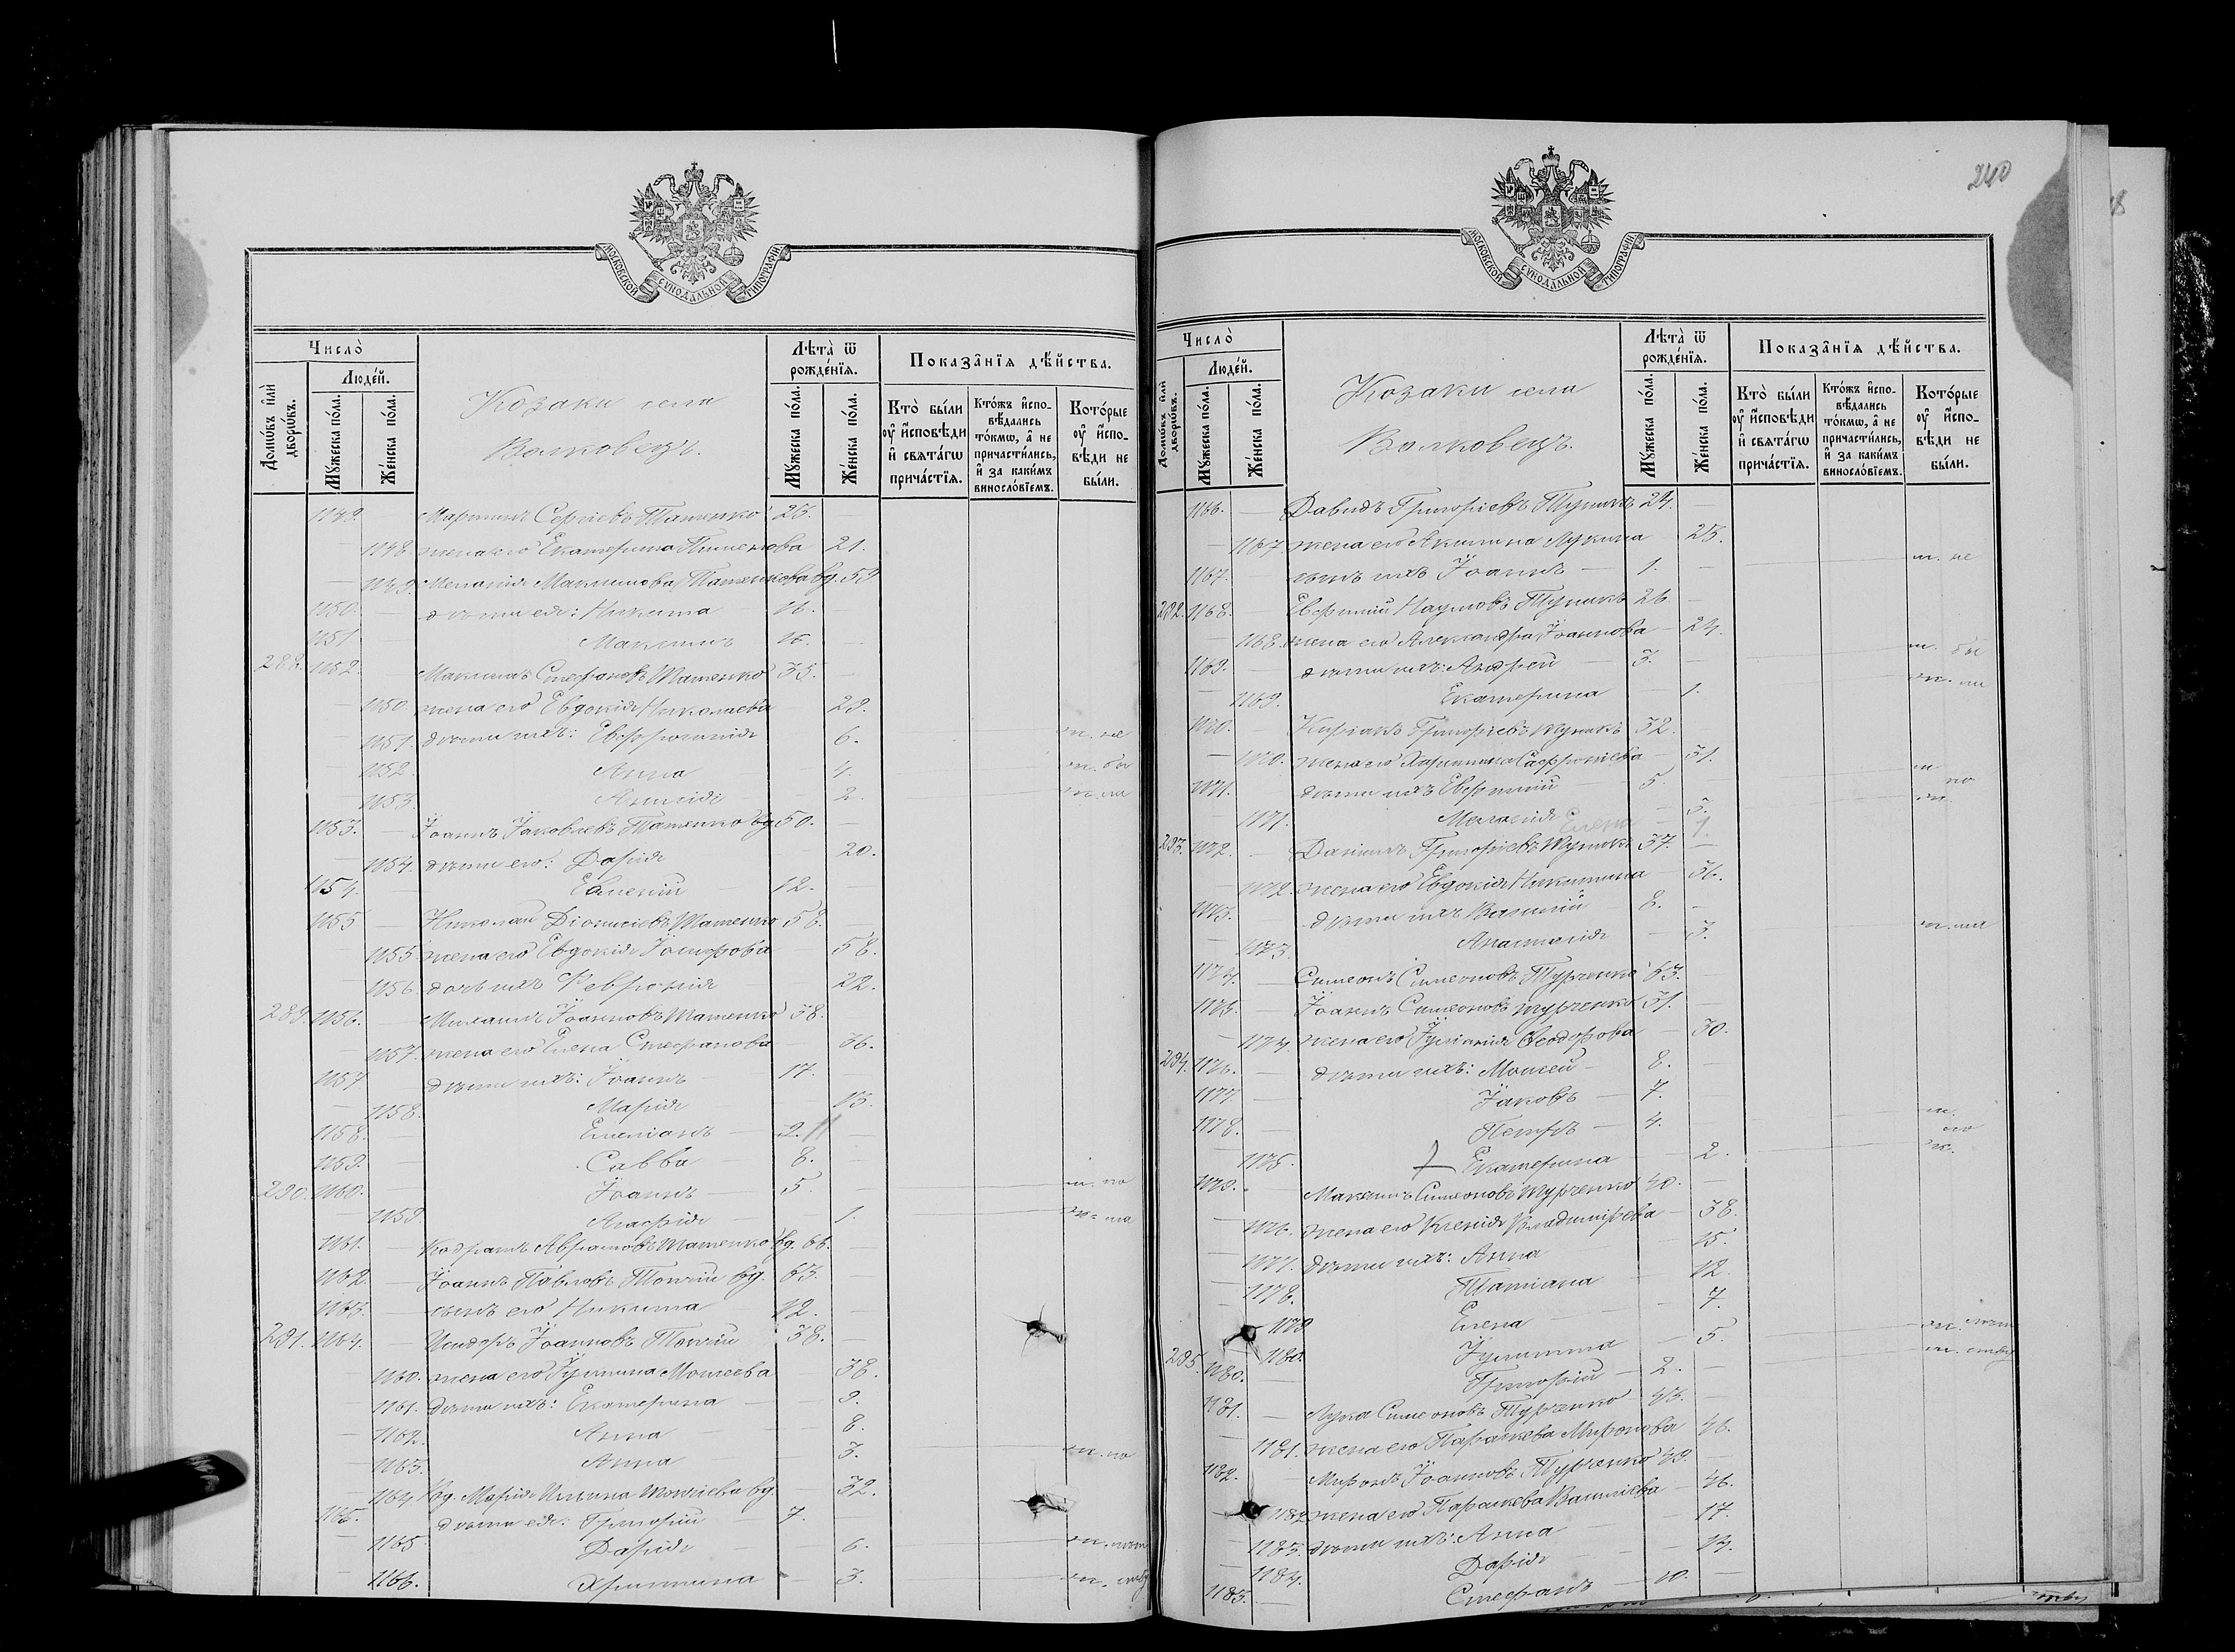 МОСКОВСКОЙ СѴНОДАЛЬНОЙ ТИПОГРАФІИ
Число̀
Домѡ́въ и҆лѝ дворѡ́въ.
Люде́й.
Мꙋ́жеска по́ла.
Же́нска по́ла.
Козаки села
Волковецъ.
Лѣ́та ѿ рожде́нїѧ.
Мꙋ́жеска по́ла.
Же́нска по́ла.
Показа̑нїѧ дѣ́йства.
Кто̀ бы́ли оу҆ и҆сповѣ́ди и҆ свѧта́гѡ прича́стїѧ.
Кто́жъ и҆спо-вѣ́дались то́кмѡ, а҆ не причасти́лись, и҆ за каки́мъ винослові́емъ.
Кото́рые оу҆ и҆спо-вѣ́ди не бы́ли.
1149. Мартинъ Сергіевъ Татенко 23.
1148. жена его Екатерина 21.
1149. Меланія Максимова Татенкова вд. 59
1150. дѣти ея: Никита 16.
1151 Максимъ
288. 1152. Максимъ Стефановъ Татенко 35.
1150 жена его Евдокія Николаева 29.
1151. дѣти ихъ: Евфросинія 6. м. не
1152 Анна 4. м. бы
1153 Анисія 2. м. ли
1153. Іоаннъ Іаковлевъ Татенко вд. 50.
1154. дѣти его: Дарія 20.
1154. Евмений 12.
1155 Николай Діонисіевъ Татенко 58.
1155. жена его Евдокія Іосифова 58.
1156. дочь ихъ Феврронія 22.
289. 1156. Михаилъ Іоанновъ Татенко 38.
1157. жена его Елена Стефанова 36.
1157 дѣти ихъ: Іоаннъ 17.
1158. Марія 15.
1158. Емеліанъ
1159. Савва 8.
290. 1160. Іоаннъ 5. м. по
1159. Агафія 1.
1161. Кодратъ Авраамовъ Татенко вд. 66.
1162. Іоаннъ Павловъ вд. 63.
1163. сынъ его Никита 12.
291. 1164. Исидоръ Іоанновъ 38.
1160. жена его Іустина Моисеева 38.
1161. дѣти ихъ: Екатерина 9.
1162. Анна 8.
1163. Анна 3. м. по
1164. вд. Марія Ильина вд. 32.
1165. дѣти ея: Григорій 7.
1165 Дарія 6.
1166. Христина 3.
240
МОСКОВСКОЙ СѴНОДАЛЬНОЙ ТИПОГРАФІИ
Число̀
Домѡ́въ и҆лѝ дворѡ́въ.
Люде́й.
Мꙋ́жеска по́ла.
Же́нска по́ла.
Козаки села
Волковецъ.
Лѣ́та ѿ рожде́нїѧ.
Мꙋ́жеска по́ла.
Же́нска по́ла.
Показа̑нїѧ дѣ́йства.
Кто̀ бы́ли оу҆ и҆сповѣ́ди и҆ свѧта́гѡ прича́стїѧ.
Кто́жъ и҆спо-вѣ́дались то́кмѡ, а҆ не причасти́лись, и҆ за каки́мъ винослові́емъ.
Кото́рые оу҆ и҆спо-вѣ́ди не бы́ли.
1166. Давидъ Григоріевъ 24.
1167 жена его Акилина Лукина 23.
1167. сынъ ихъ Іоаннъ 1. м. не
292. 1168. Евфимій Наумовъ 26.
1168. жена его Александра Іоаннова 24.
1169. дѣти ихъ: Андрей 3. м. бы
1169. Екатерина 1. м. ли
1170. Киріакъ Григоріевъ 32.
1170. жена его Харитина 31.
1171. дѣти ихъ Евфимій 5. м
1171. Меланія 3.
Елена 1
293. 1172. Даніилъ Григоріевъ 37.
1172. жена его Евдокія Никитина 36.
1173. дѣти ихъ Василій 8.
1173 Анастасія 3.
1174. Симеонъ Симеоновъ Турченко 63.
1175. Іоаннъ Симеоновъ Турченко 31.
1174. жена его Іуліанія Ѳеодорова 30.
294. 1176. дѣти ихъ: Моисей 8.
1177. Іаковъ 7.
1178. Петръ 4. м.
1175. Екатерина 2.
1179. Максимъ Симеоновъ Турченко 40.
1176. жена его Ксенія Владимірова 38.
1177. дѣти ихъ: Анна 15.
1178. Татіана 12
1179 Елена 7.
1180. Іулитта 5.
295. 1180. Григорій 2.
1181. Лука Симеоновъ Турченко
1181. жена его Параскева Миронова 46.
1182. Миронъ Іоанновъ Турченко 49.
1182 жена его Параскева Василіева 46.
1183. дѣти ихъ: Анна 17.
1184. Дарія 14.
1183. Стефанъ 10.